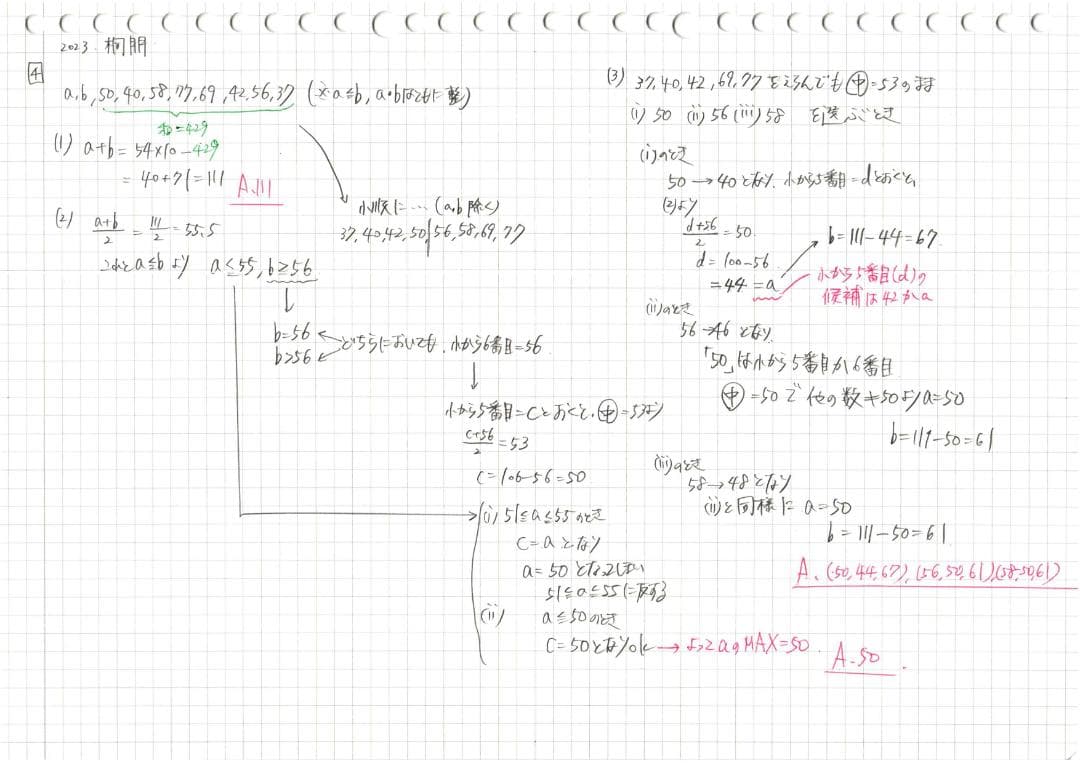 2023. 桐朋
4
a,b, 50, 40, 58, 77, 69, 42, 56, 37 (※a≦b, a・bはともに整)
和=429
(1) a+b = 54×10-429
= 40+71=111
A.111
(2) a+b/2 = 111/2 = 55.5
これとa≦bより a≦55, b≧56
小順に… (a,b除く)
37, 40, 42, 50, | 56, 58, 69, 77
b=56
b>56
どちらにおいても、小から6番目=56
小から5番目=Cとおくと、㊥=53より
c+56/2 = 53
C=106-56=50
(i) 51≦a≦55のとき
C=aとなり
a=50となってしまい
51≦a≦55に反する
(ii) a≦50のとき
C=50となりok → よってaのMAX=50
A.50
(3) 37,40,42,69,77をえらんでも㊥=53のまま
(i) 50 (ii) 56 (iii) 58 を選ぶとき
(i)のとき
50→40となり、小から5番目=dとおくと、
(2)より
d+56/2 = 50
d=100-56
=44=a
b=111-44=67
小から5番目(d)の
候補は42かa
(ii)のとき
56→46となり
「50」は小から5番目か6番目
㊥=50で他の数≠50よりa=50
b=111-50=61
(iii)のとき
58→48となり
(ii)と同様に a=50
b=111-50=61
A. (50,44,67), (56,50,61), (58,50,61)